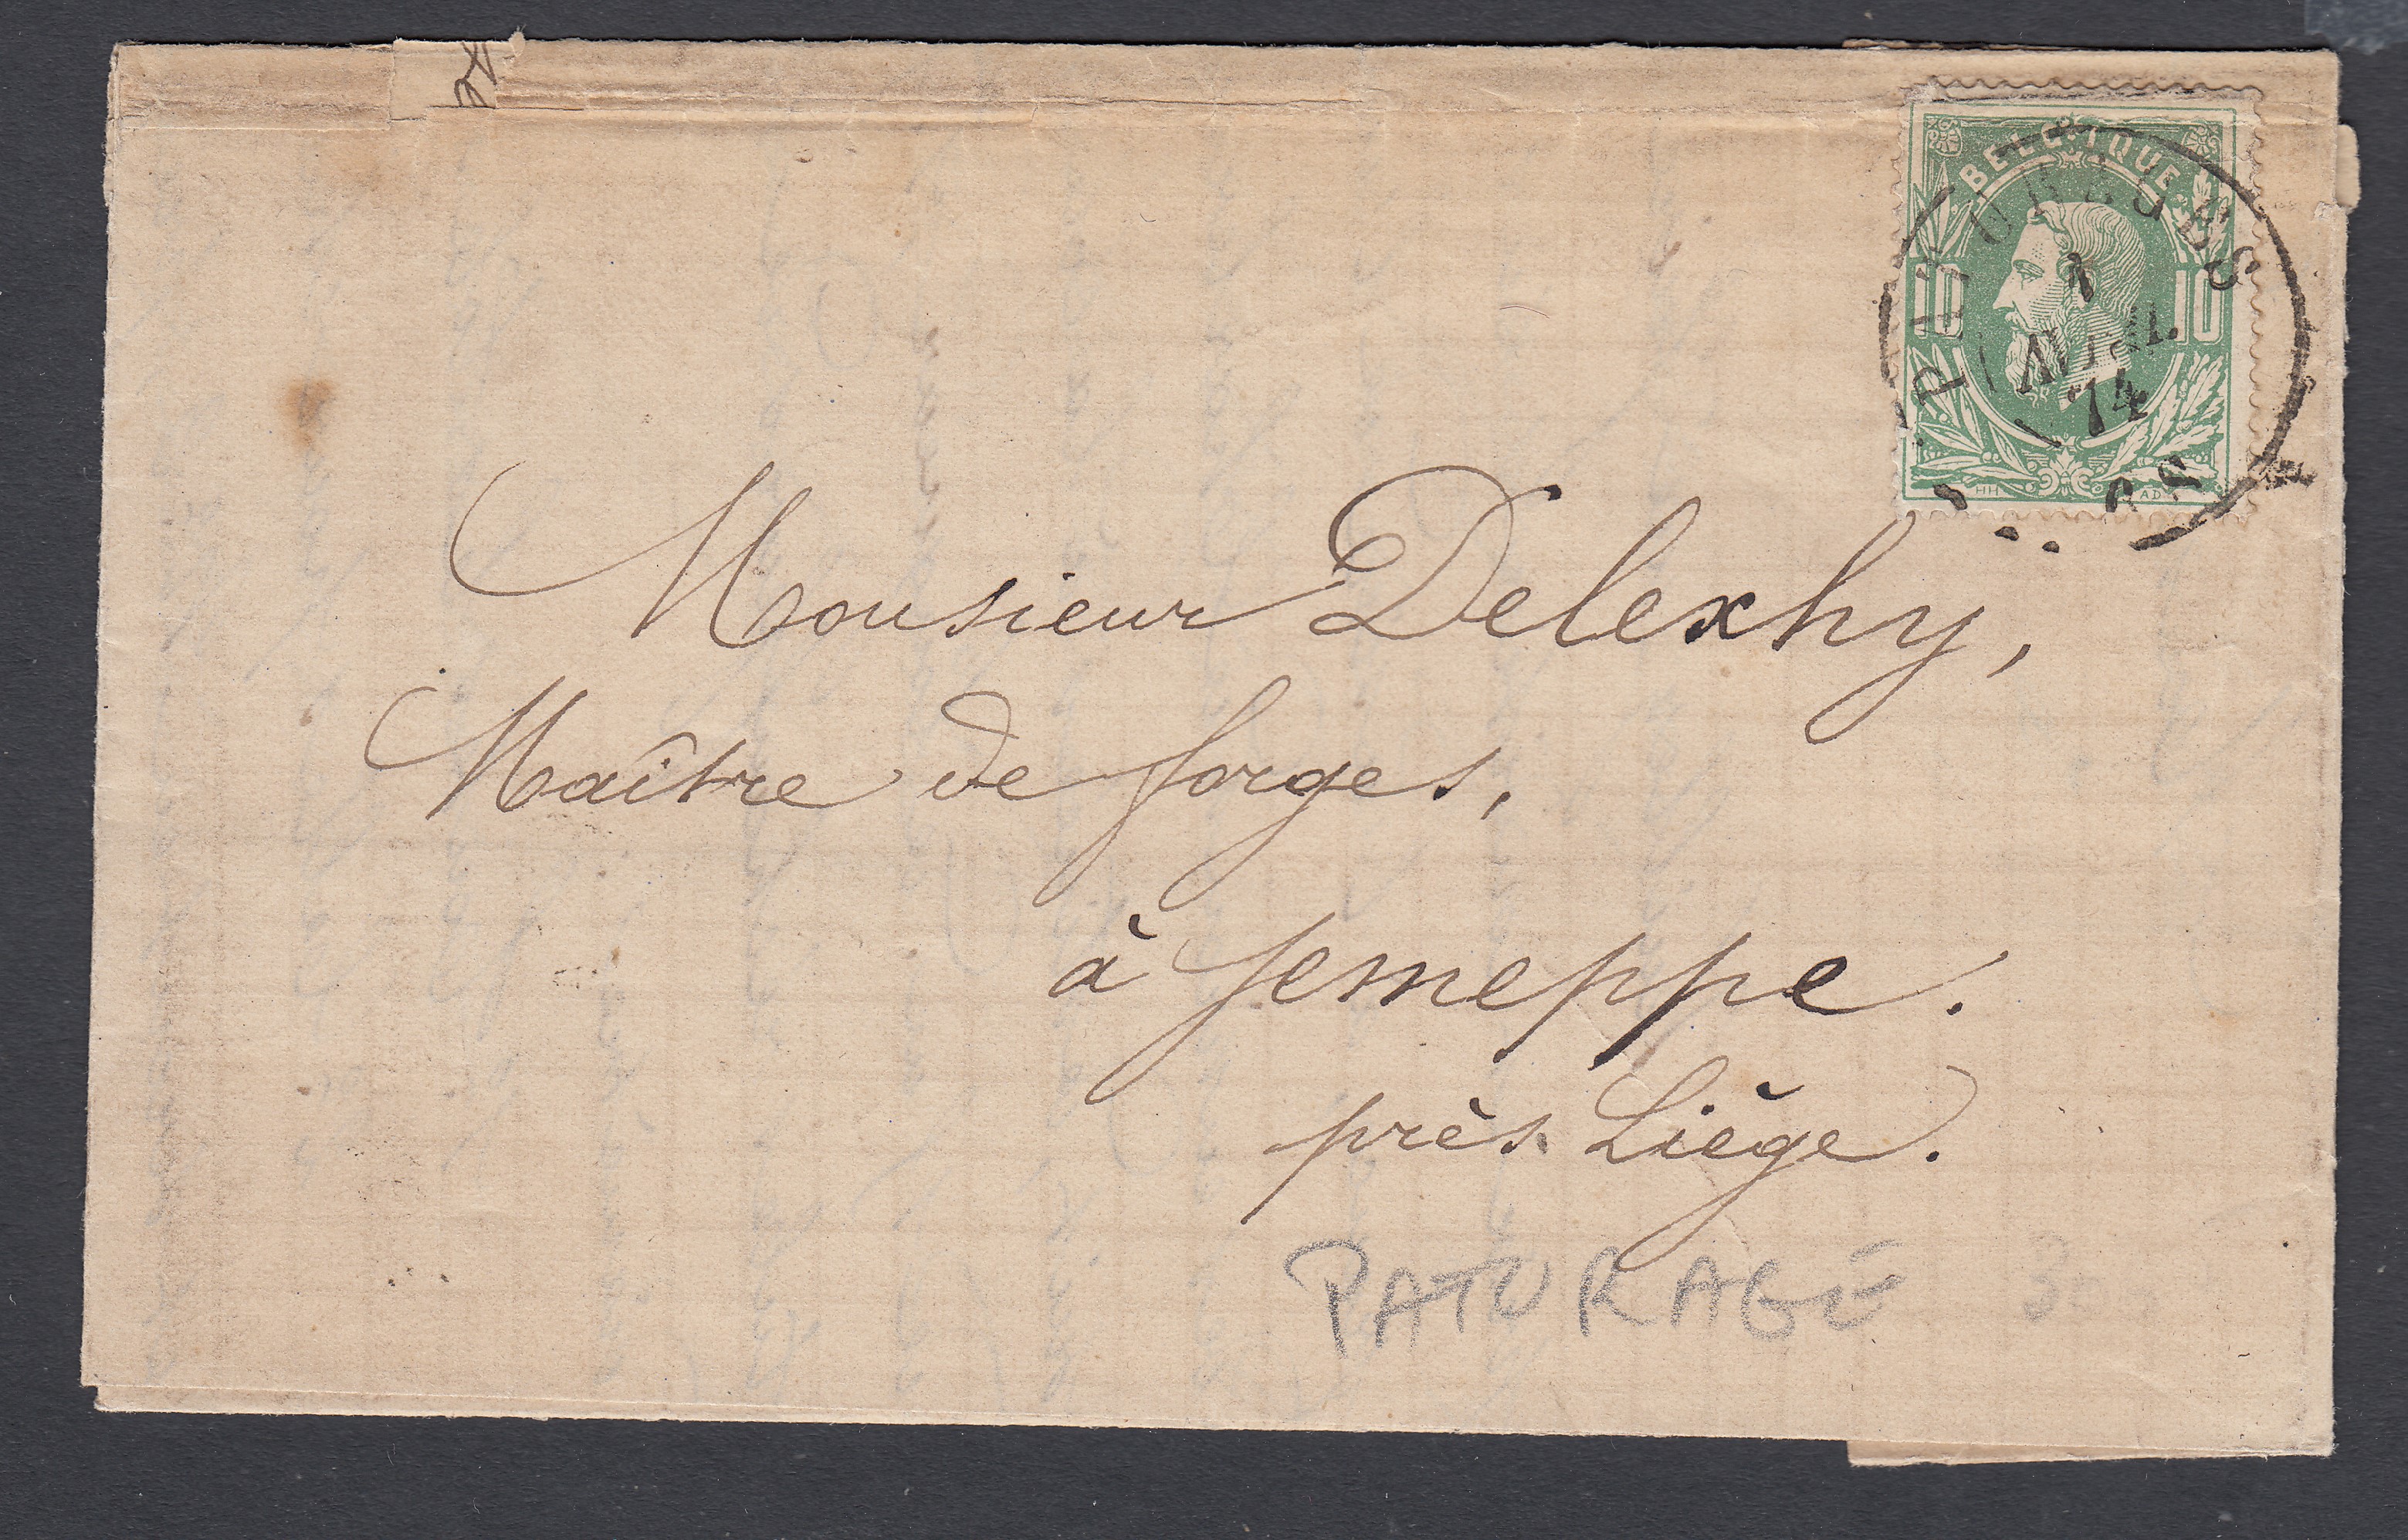 BELGIQUE
10 10
HH AD
PATURAGES
1
AVRIL
74
Monsieur Delexhy,
Maître de forges,
à Jemeppe.
près Liège.
PATURAGE